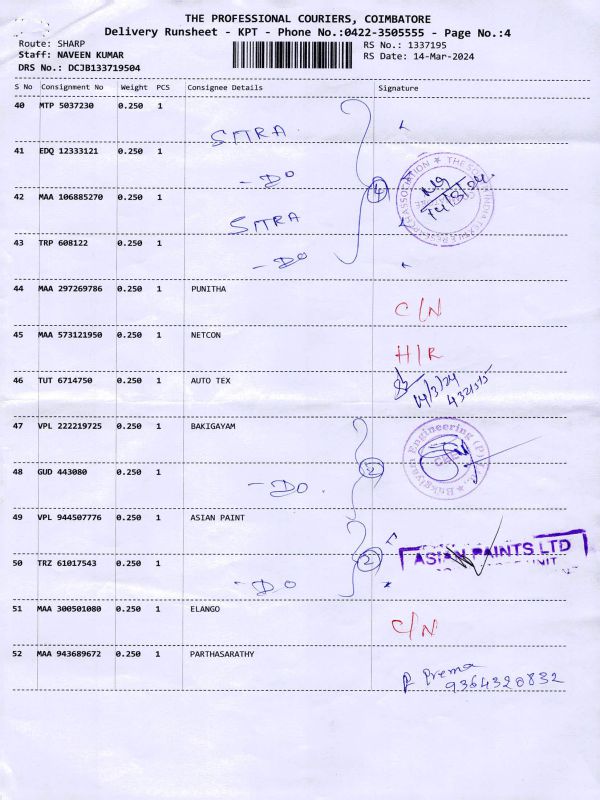 THE PROFESSIONAL COURIERS, COIMBATORE
Delivery Runsheet - KPT - Phone No.:0422-3505555 - Page No.:4
Route: SHARP
RS No.: 1337195
Staff: NAVEEN KUMAR
RS Date: 14-Mar-2024
DRS No.: DCJB133719504
S No Consignment No Weight PCS Consignee Details Signature
40 MTP 5037230 0.250 1
SITRA
41 EDQ 12333121 0.250 1
-DO
42 MAA 106885270 0.250 1
SITRA
43 TRP 608122 0.250 1
-DO
4
14/3/24
44 MAA 297269786 0.250 1 PUNITHA
C/N
45 MAA 573121950 0.250 1 NETCON
H/R
46 TUT 6714750 0.250 1 AUTO TEX
14/3/24
47 VPL 222219725 0.250 1 BAKIGAYAM
Bakgiyam Engineering (P)
48 GUD 443080 0.250 1
-DO.
2
49 VPL 944507776 0.250 1 ASIAN PAINT
ASIAN PAINTS LTD
50 TRZ 61017543 0.250 1
-DO
2
51 MAA 300501080 0.250 1 ELANGO
C/N
52 MAA 943689672 0.250 1 PARTHASARATHY
P Prema
9364320832